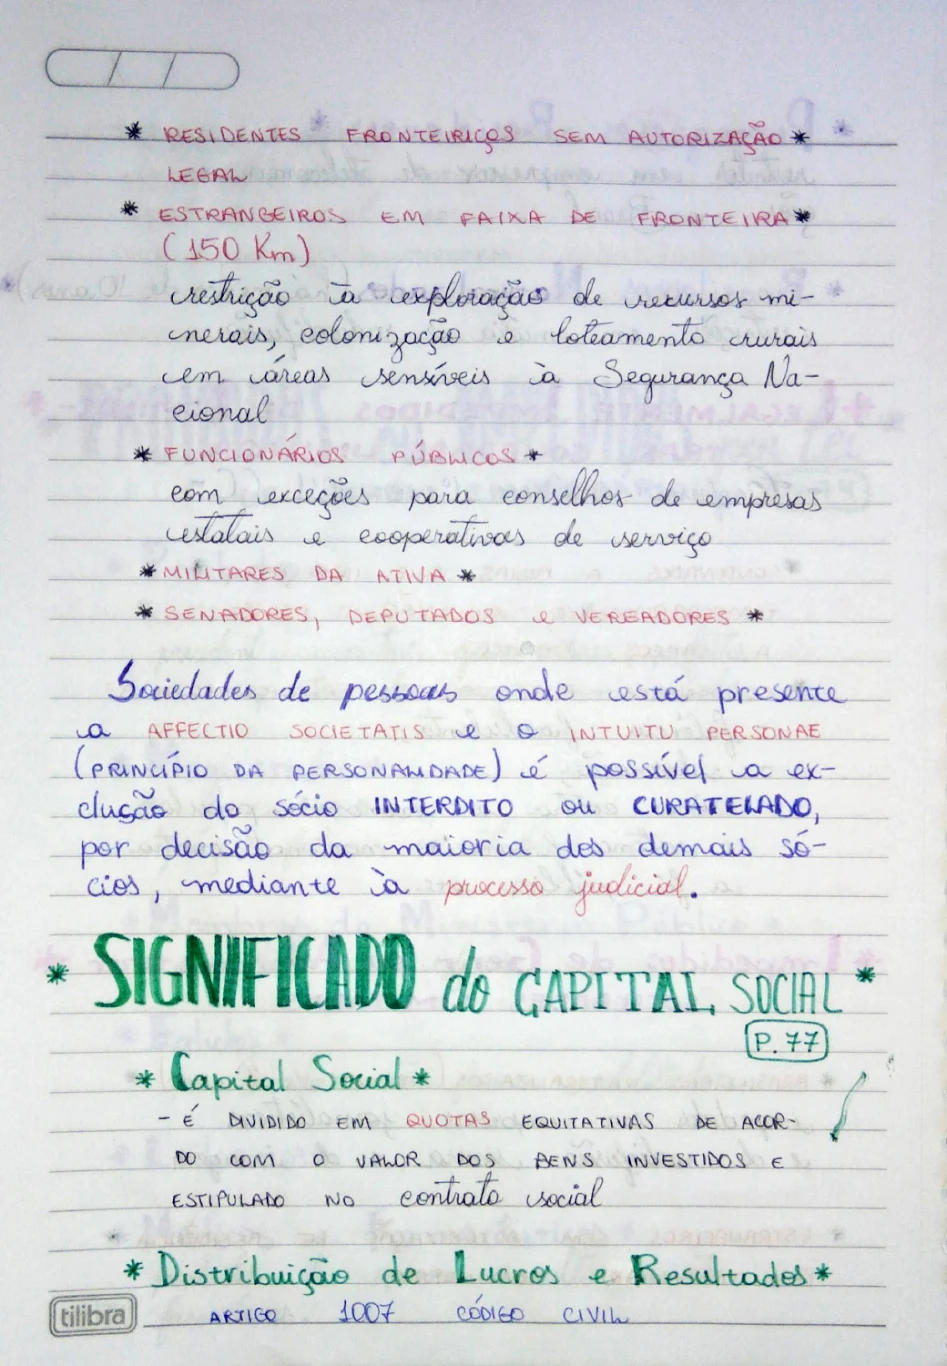 * RESIDENTES FRONTEIRIÇOS SEM AUTORIZAÇÃO *
LEGAL
* ESTRANGEIROS EM FAIXA DE FRONTEIRA *
(150 Km)
restrição à exploração de recursos mi-
nerais, colonização e loteamento rurais
em áreas sensíveis à Segurança Na-
cional
* FUNCIONÁRIOS PÚBLICOS *
com exceções para conselhos de empresas
estatais e cooperativas de serviço
* MILITARES DA ATIVA *
* SENADORES, DEPUTADOS e VEREADORES *
Sociedades de pessoas onde está presente
a AFFECTIO SOCIETATIS e o INTUITU PERSONAE
(PRINCÍPIO DA PERSONALIDADE) é possível a ex-
clusão do sócio INTERDITO ou CURATELADO,
por decisão da maioria dos demais só-
cios, mediante à processo judicial.
* SIGNIFICADO do CAPITAL SOCIAL *
P. 77
* Capital Social *
- É DIVIDIDO EM QUOTAS EQUITATIVAS DE ACOR-
DO COM O VALOR DOS BENS INVESTIDOS E
ESTIPULADO NO contrato social
* Distribuição de Lucros e Resultados *
tilibra ARTIGO 1007 CÓDIGO CIVIL